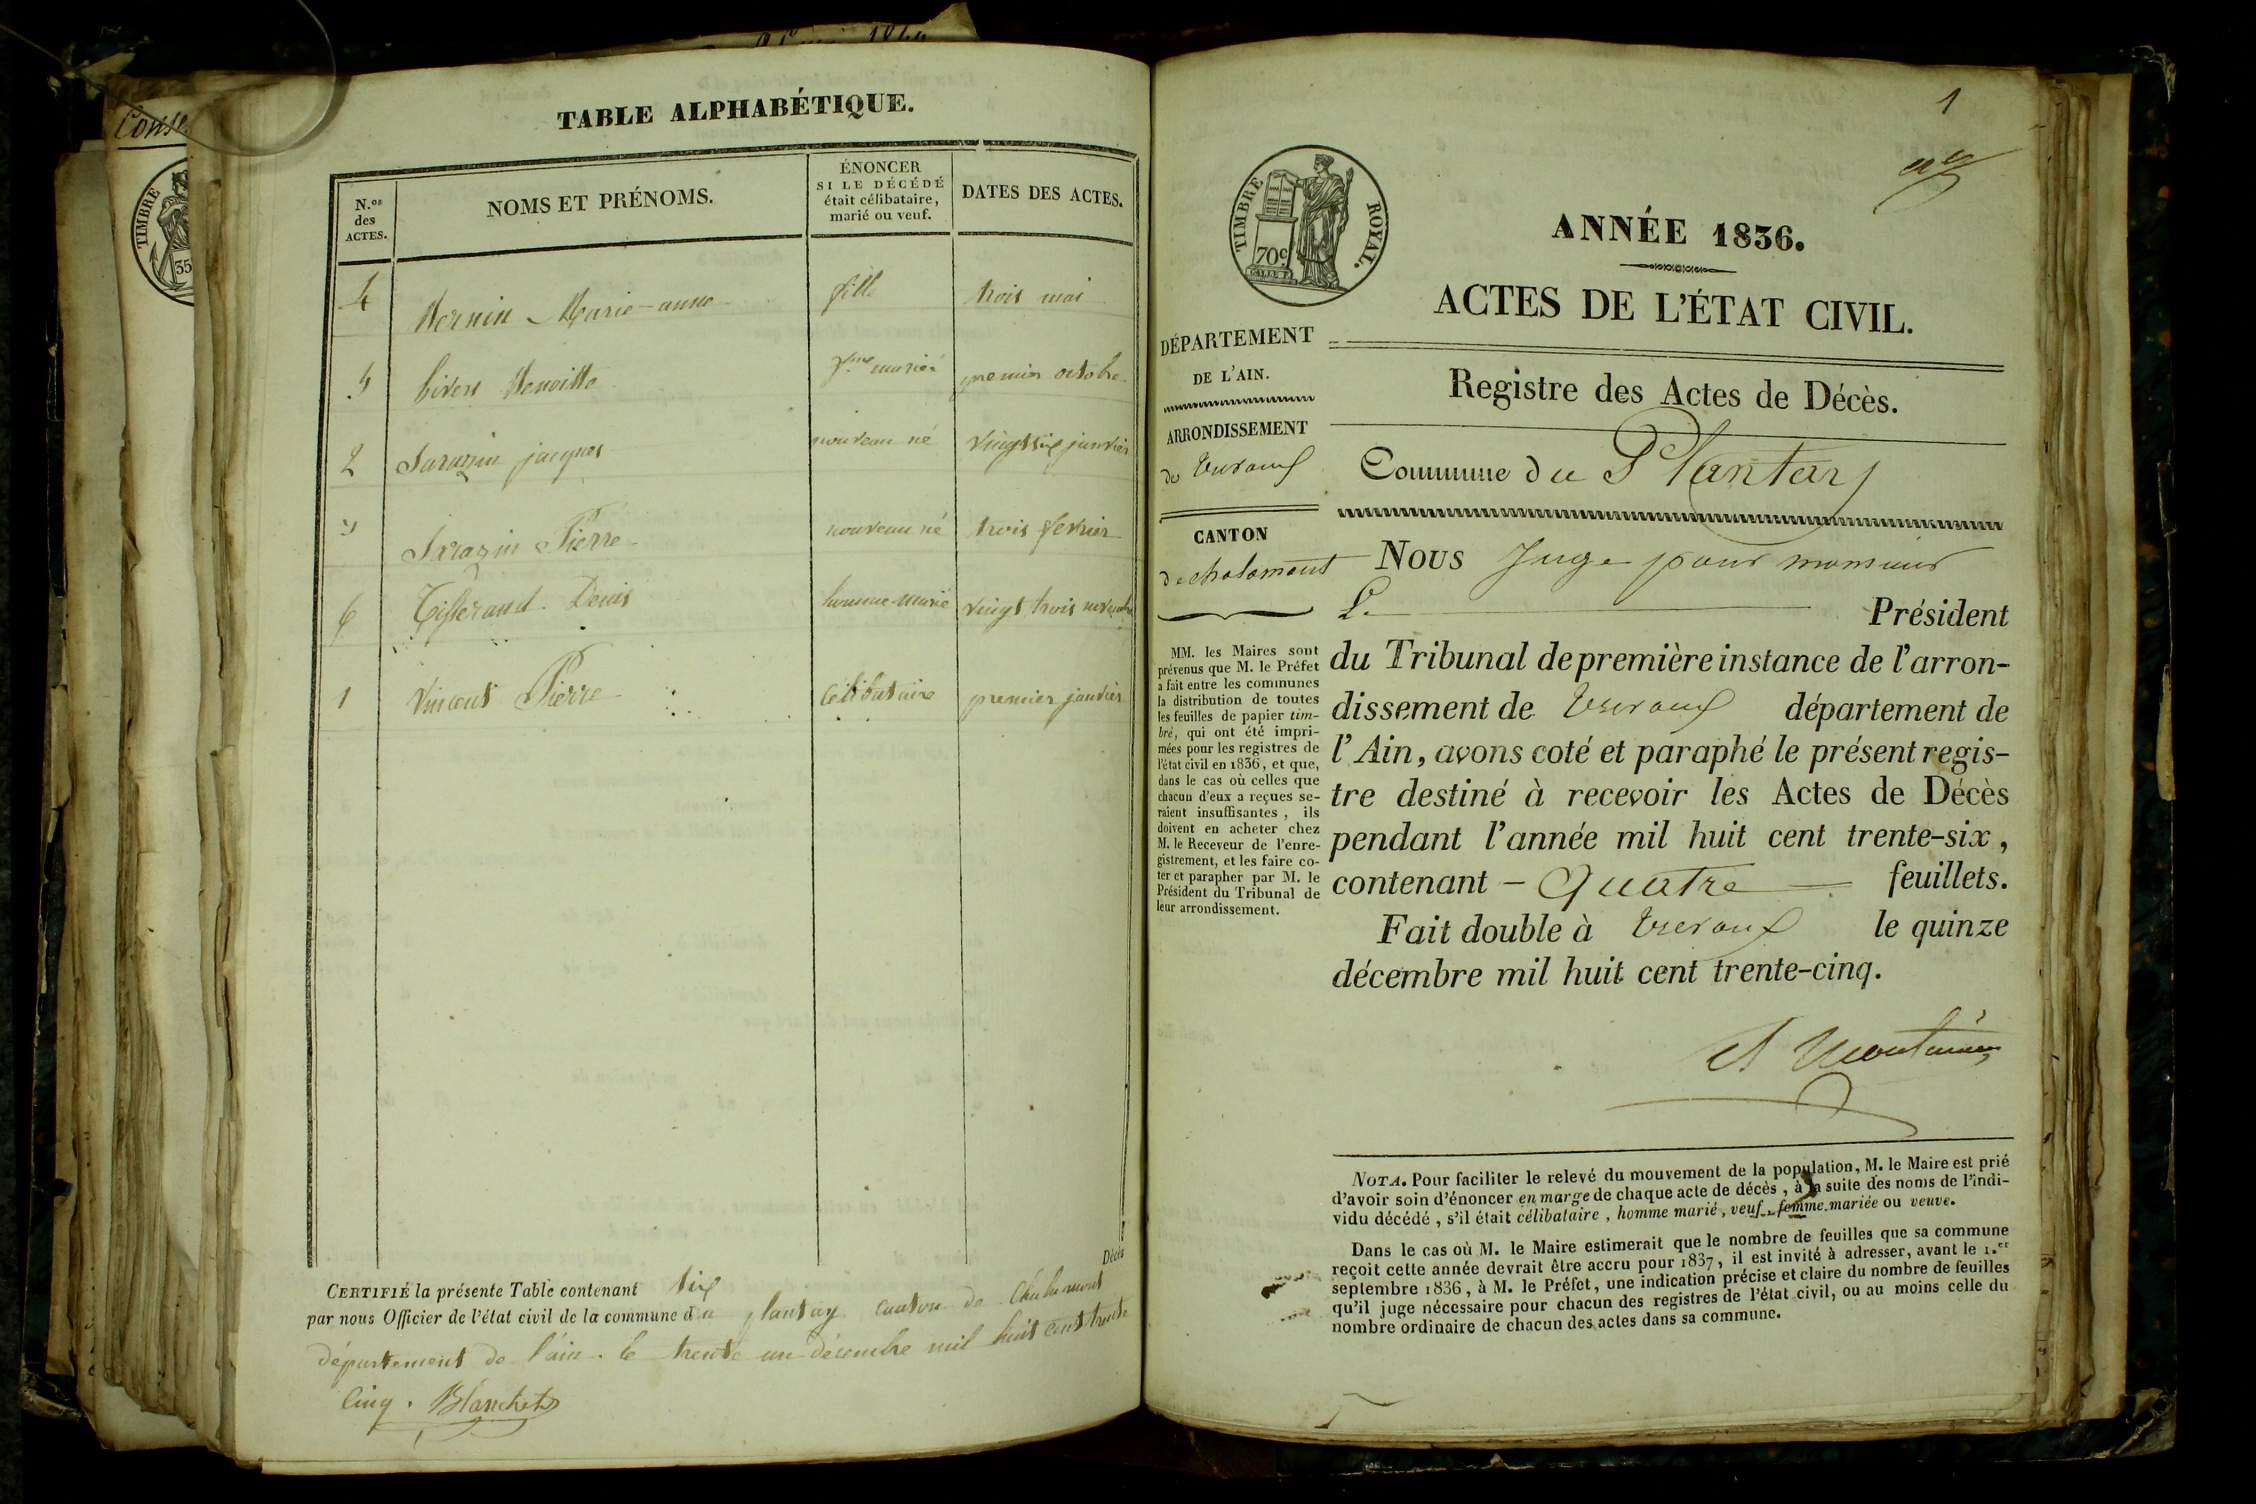 Conse
TIMBRE
35
1840
TABLE ALPHABÉTIQUE.
N.os des ACTES.
NOMS ET PRÉNOMS.
ÉNONCER
SI LE DÉCÉDÉ
était célibataire,
marié ou veuf.
DATES DES ACTES.
4 Marie-anne fille trois mai
5 mariée premier octobre
2 Sarazin jacques nouveau né vingt six janvier
3 Sarazin Pierre nouveau né trois fevrier
6 Tisserand Denis homme marié vingt trois novembre
1 Vincent Pierre célibataire premier janvier
Décès
CERTIFIÉ la présente Table contenant six
par nous Officier de l'état civil de la commune du plantay canton de Chalamont
département de l'ain. le trente un décembre mil huit cent trente
cinq. Blanchet
1
TIMBRE ROYAL.
70c
ANNÉE 1836.
ACTES DE L'ÉTAT CIVIL.
DÉPARTEMENT
DE L'AIN.
ARRONDISSEMENT
de Trevoux
CANTON
de chalamont
MM. les Maires sont
prévenus que M. le Préfet
a fait entre les communes
la distribution de toutes
les feuilles de papier tim-
bré, qui ont été impri-
mées pour les registres de
l'état civil en 1836, et que,
dans le cas où celles que
chacun d'eux a reçues se-
raient insuffisantes, ils
doivent en acheter chez
M. le Receveur de l'enre-
gistrement, et les faire co-
ter et parapher par M. le
Président du Tribunal de
leur arrondissement.
Registre des Actes de Décès.
Commune du Plantay
NOUS Juge pour monsieur
Le Président
du Tribunal de première instance de l'arron-
dissement de Trevoux département de
l'Ain, avons coté et paraphé le présent regis-
tre destiné à recevoir les Actes de Décès
pendant l'année mil huit cent trente-six,
contenant – quatre — feuillets.
Fait double à Trevoux le quinze
décembre mil huit cent trente-cinq.
NOTA. Pour faciliter le relevé du mouvement de la population, M. le Maire est prié
d'avoir soin d'énoncer en marge de chaque acte de décès, à la suite des noms de l'indi-
vidu décédé, s'il était célibataire, homme marié, veuf, femme mariée ou veuve.
Dans le cas où M. le Maire estimerait que le nombre de feuilles que sa commune
reçoit cette année devrait être accru pour 1837, il est invité à adresser, avant le 1.er
septembre 1836, à M. le Préfet, une indication précise et claire du nombre de feuilles
qu'il juge nécessaire pour chacun des registres de l'état civil, ou au moins celle du
nombre ordinaire de chacun des actes dans sa commune.